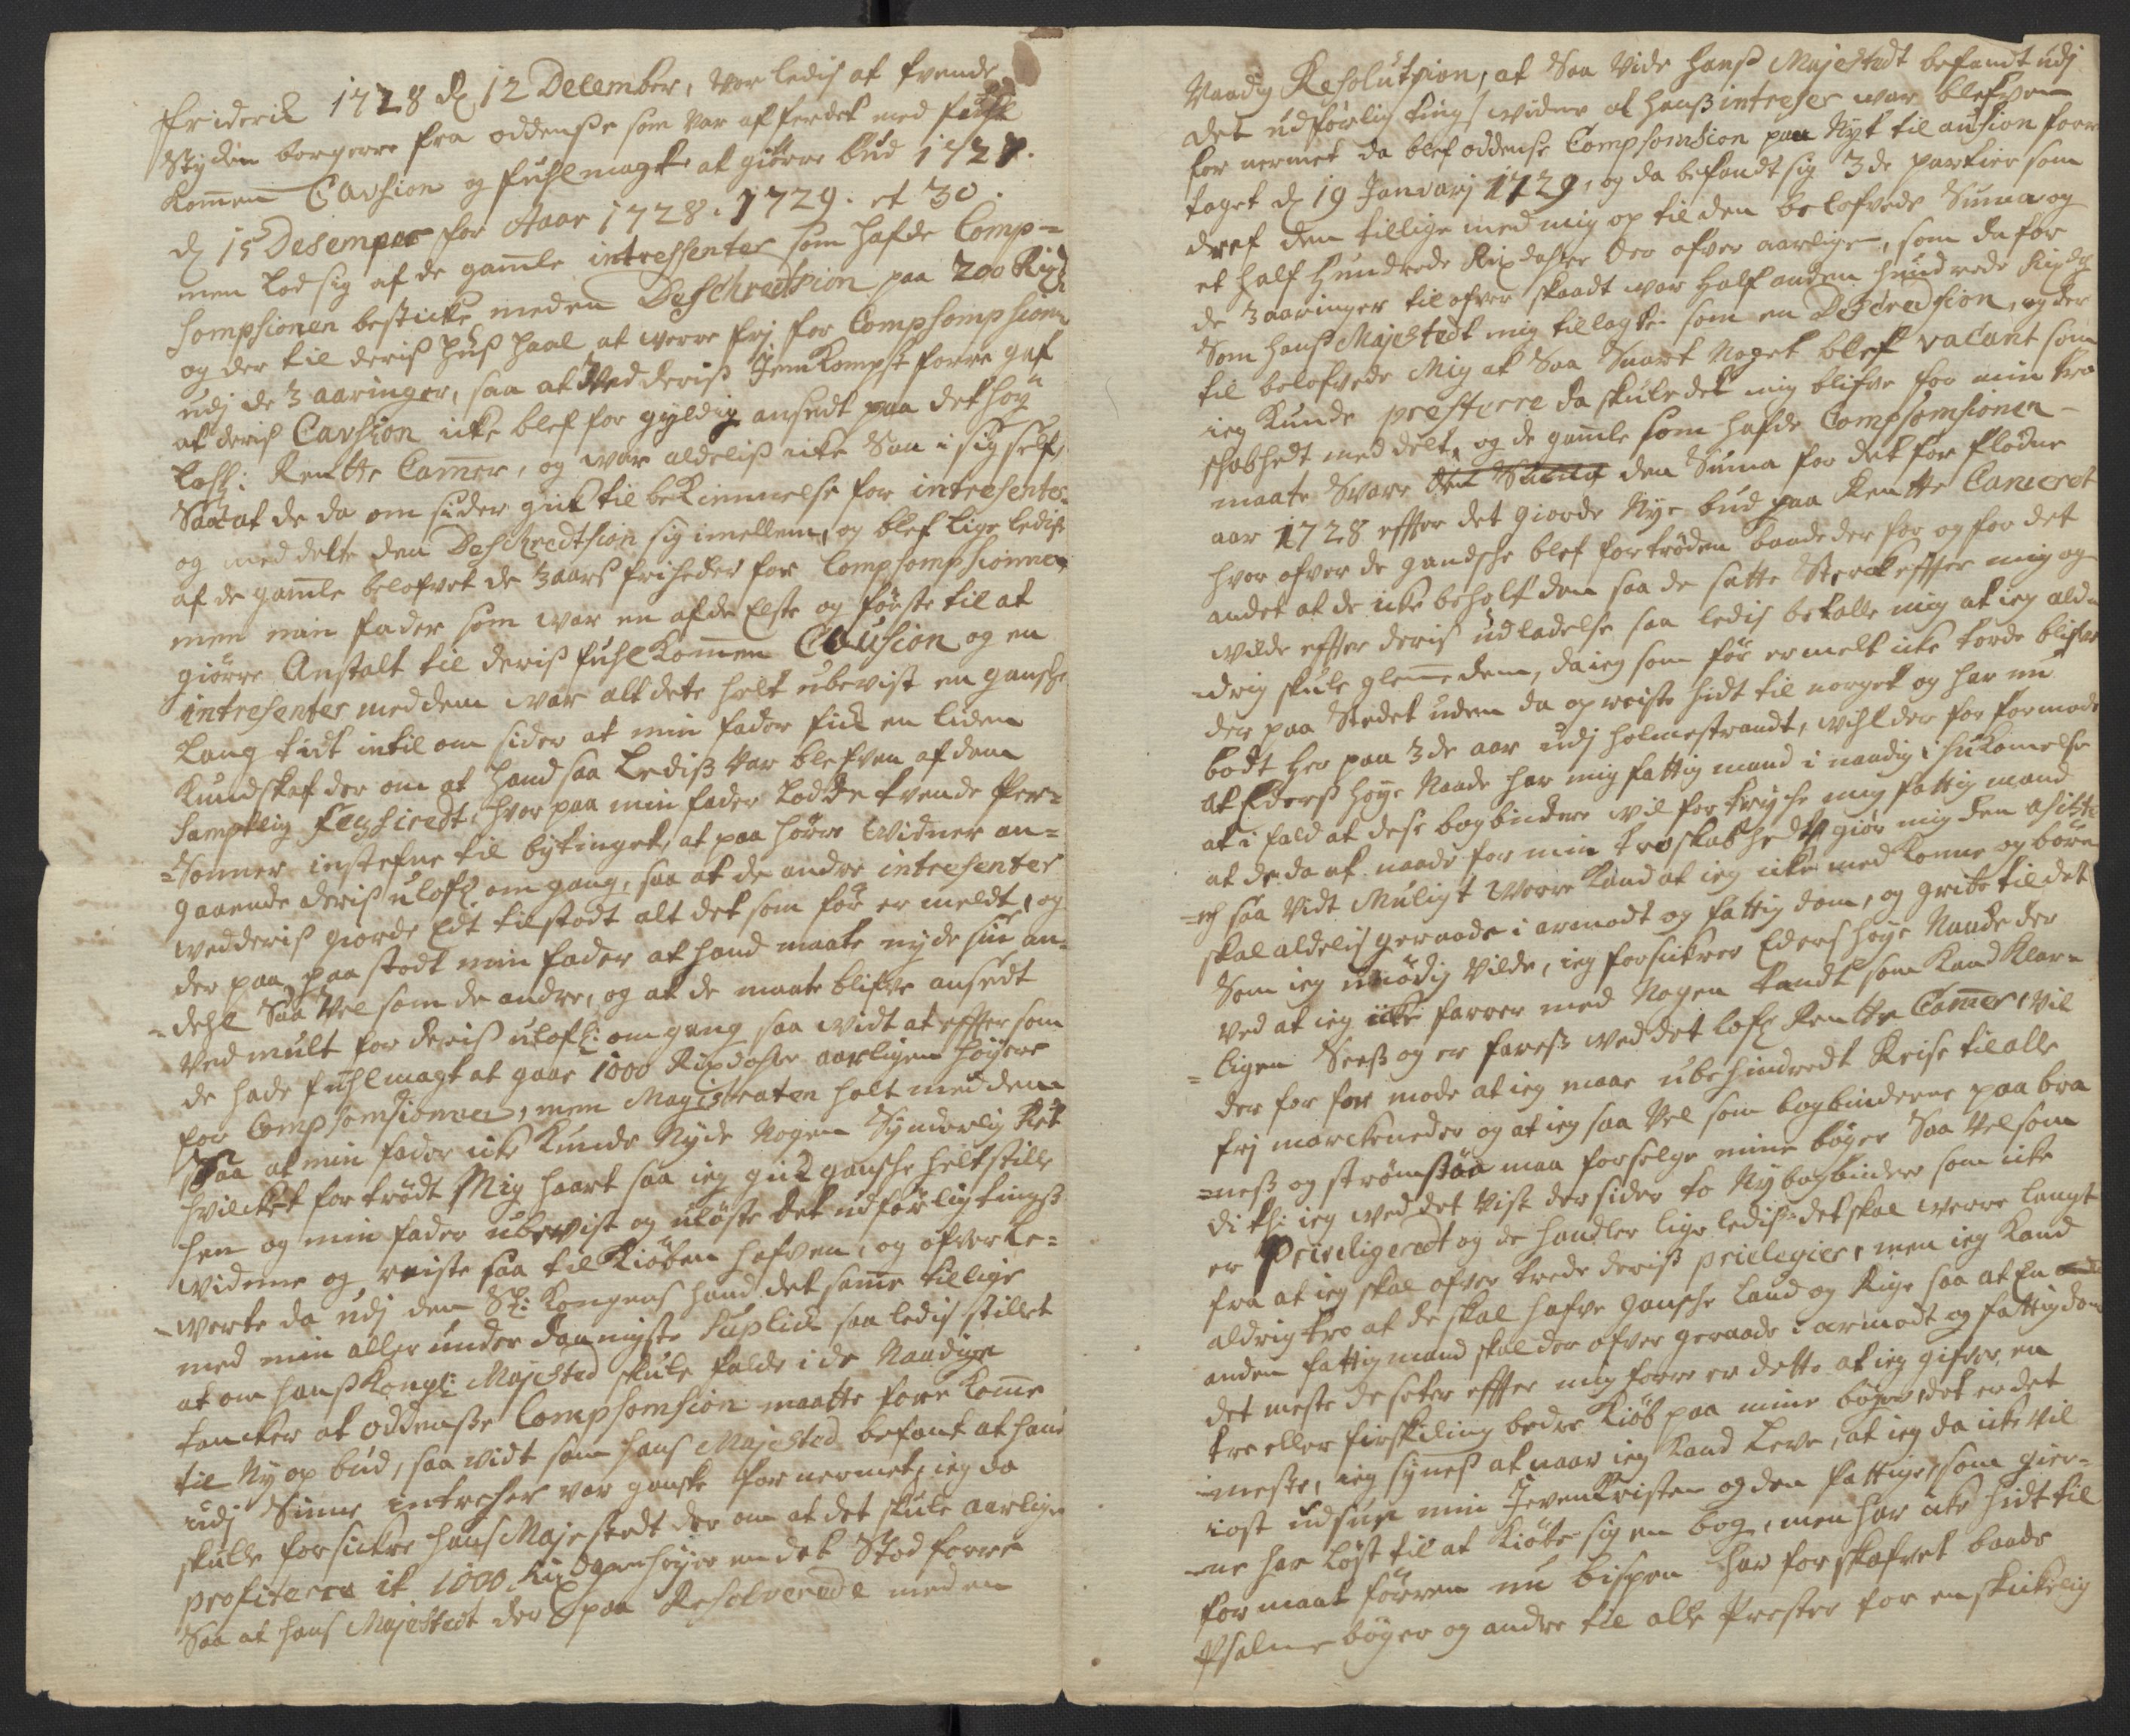 friderik 1728 d 12 December, var ledis at tvende
Stydin borgere fra oddense som var afferdet med fuhl
komen Caution og fuhlmagt at giörre bud 1727.
d 15 Desember for Aaar 1728. 1729. et 30.
men lod sig af de gamle intressenter som hafde Comp-
Sompsionen besticke med en Deschredsion paa 200 Rixd
og der til deris huus haal at verre frj for Compsompsionen
udj de 3 aaringer, saa at ved deris Jemkompst forre gaf
at deris Cavsion icke blef for gyldig ansedt paa det høy
lofl: Rentte Camer, og var aldelis icke Saa i sig self,
Saa at de da om sider gick til bekiennelse for intresenter
og med delte den Deschredtsion sig imellem, og blef lige ledis
af de gamle belofvet de 3 aars friheder for Compsompsionnen
men min fader som var en af de Elste og första til at
giörre Anstalt til deris fuhlkomen Causion og en
intresenter med dem var alt dete helt ubevist en gansche
lang tidt intil om sider at min fader fick en liden
Kundskaf der om at hand saa Lediss var blefven af dem
Samptlig fexsiredt, hvor paa min fader lod de tvende Per-
=sonner instefne til bytinget, at paa hörre Vidner an=
gaaende deris ulofl omgang, saa at de andre intresenter
ved deris giorde Edt tilstodt alt det som för er meldt, og
der paa paa stodt min fader at hand maate nyde sin an-
=dehl Saa Vel som de andre, og at de maate blifve ansedt
Ved mult for deris ulofl: omgang saa vidt at effter som
de hade fuhlmagt at gaae 1000 Rixdahler aarligen höyere
for Compsomsionnen, men Magistraten holt med dem
Saa at min fader icke kunde Nyde Nogen Synderlig Ret
hvilcket for trödt Mig haart saa ieg gick gansche helt stille
hen og min fader ubevist og uløste det udførlig tings
Vidnne og reiste saa til Kiöben hafven, og ofverle=
=verte da udj den Sl: Kongens haand det same tillige
med min aller under daanigste Suplick saa ledis stillet
at om hans Kongl: Majested skule falde i de Naadige
tancker at oddense Compsomsion maatte fore kome
til Ny op bud, saa vidt som hans Majested befant at hans
udj Sinne intreser var ganske for nermet, ieg da
skulle forsickre hans Majestedt der om at det skule aarligen
profiterre it 1000 Rixdaler höyer en det Stod forre
Saa at hans Majestedt der paa Resolverede med en
Naadig Resolutsion, at Saa Vide hans Majestedt befandt udj
det udförlig tings vidne at hans intreser var blefven
for nermet da blef oddense Compsomsion paa Nyt til ausion fore
taget d 19 Janvarj 1729, og da befandt sig 3 de partier som
dref den tillige med mig op til den belofvede Suma og
et half Hundrede Rixdahler der ofver aarligen, som da for
de 3 aaringer tilofver skaadt var half anden hundrede Rixd
Som hans Majestedt mig tillagte som en Descredsion, og der
til belofvede Mig at Saa Snart Noget blef vacant som
ieg kunde presterre da skule det mig blifve for min tro
skabhedt meddelt, og de gamle som hafde Compsomsionen
maate Svare den Suma for det for flødne
aar 1728 effter det giorde Nye bud paa Rentte Cameret
hvor ofver de gandsche blef fortröden baade der for og for det
andet at de icke beholt den saa de satte Sterck effter mig og
vilde effter deris udladelse saa ledis betalle mig at ieg ald
=drig skule glemme dem, da ieg som för ermelt icke torde blifve
der paa Stedet uden da op reiste hidt til norget og har nu
bodt her paa 3 de aar udj holmestrandt, vihl der for formode
at Eders höye Naade har mig fattig mand i naadig ihukomelse
at i fald at dese bogbindere vil fortryche mig fattig mand
at de da af naade for min troskabhedt giör mig den asiste
=ns saa vidt Muligt verre kand at ieg icke med konne og börn
skal aldelis geraade i armodt og fattigdom, og gribe til det
Som ieg unödig vilde, ieg forsickrer Eders höye Naade der
ved at ieg icke farrer med Nogen tandt som kand klar=
=ligen Sees og er fares ved det lofl Rentte Camer, vil
der for for mode at ieg maae ubehindredt Reise til alle
frj marckneder og at ieg saa Vel som bogbinderne paa bra
=nes og strömsöe maa forselge mine böger Saa Vel som
di th: ieg ved det Vist der sider to Ny bogbinder som icke
er Privligeredt og de handler lige ledis, det skal verre langt
fra at ieg skal ofver trede deris prielegier, men ieg kand
aldrig tro at de skal hafve gansche land og Rige saa at En
anden fattig mand skal der ofver geraade i armodt og fattigdom
det meste de seter effter mig forre er dette at ieg gifver en
tre eller firskiling bedre Kiöb paa mine böger, det er det
meste, ieg synes at naar ieg kand Leve, at ieg da icke vil
iost udsue min Jevenkristen og den fattige, som gier=
=ne har löst til at kiöbe sig en bog, men har icke hidt til
formaat förren nu bispen har forskafvet baade
Psalme böger og andre til alle Prester for en skickelig